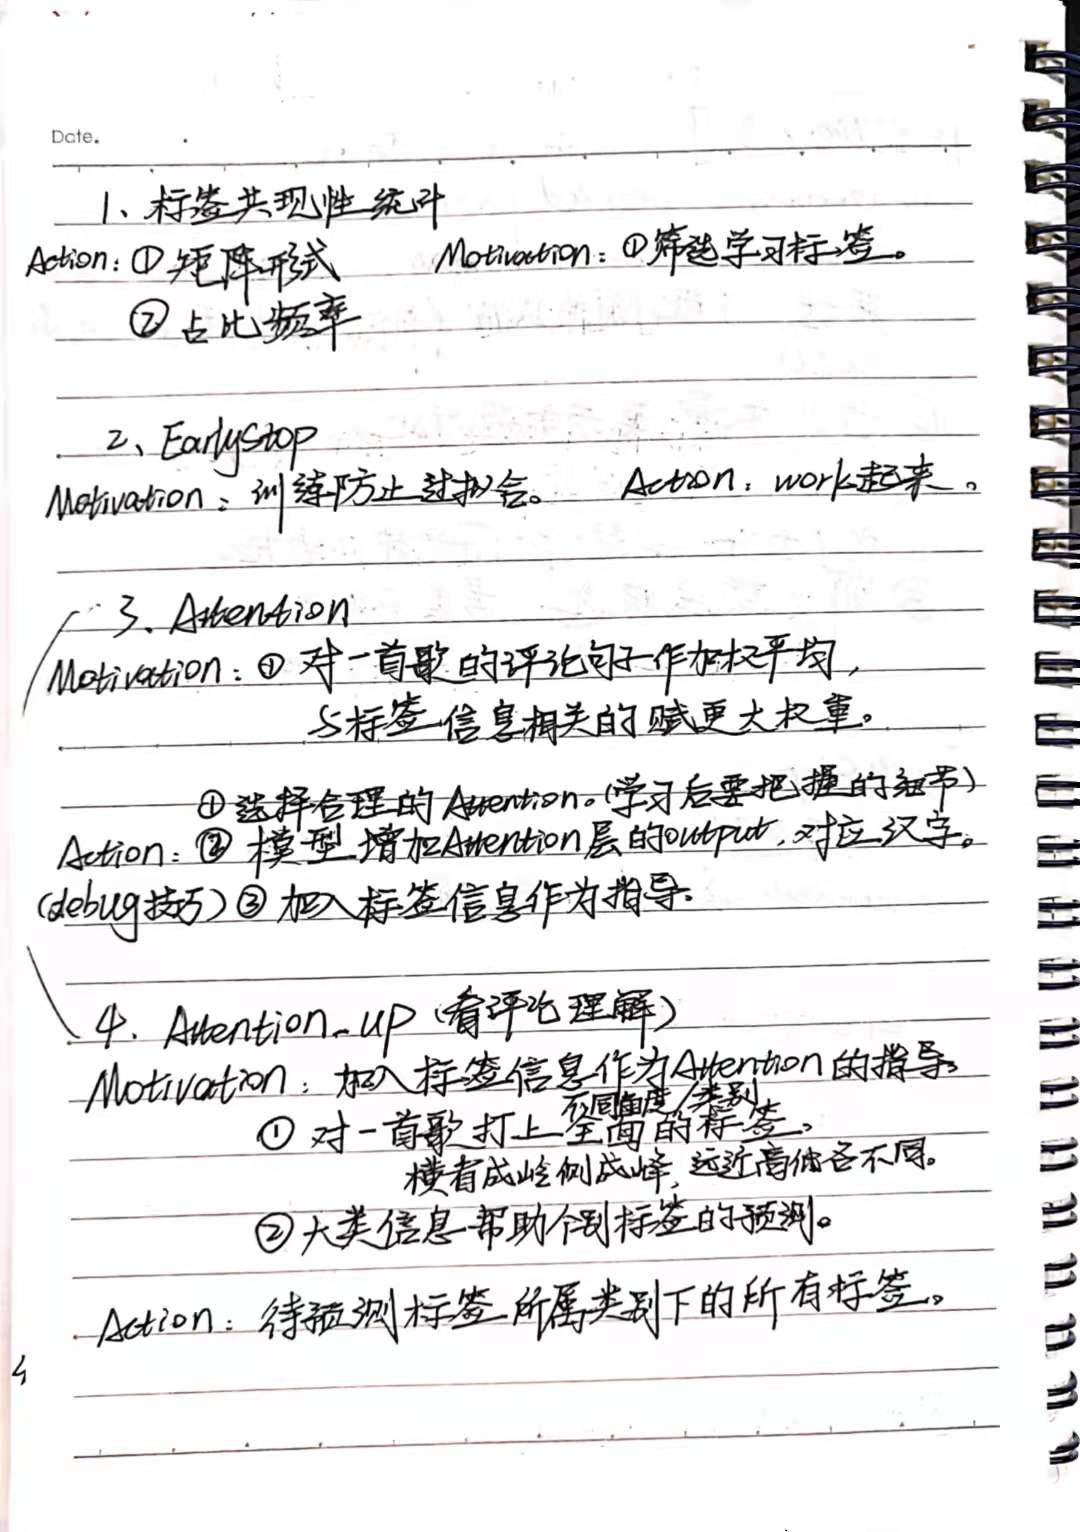 Date.
1、标签共现性统计
Action: ①矩阵形式 Motivation: ①筛选学习标签。
②占比频率
2、EarlyStop
Motivation: 训练防止过拟合。 Action: work起来。
3、Attention
Motivation: ①对一首歌的评论句子作加权平均,
与标签信息相关的赋更大权重。
①选择合理的Attention。(学习后要把握的细节)
Action: ②模型增加Attention层的output,对应汉字。
(debug技巧) ③加入标签信息作为指导.
4. Attention-up (看评论理解)
Motivation: 加入标签信息作为Attention的指导。
不同角度/类别
①对一首歌打上全面的标签。
横看成岭侧成峰,远近高低各不同。
②大类信息帮助个别标签的预测。
Action: 待预测标签所属类别下的所有标签。